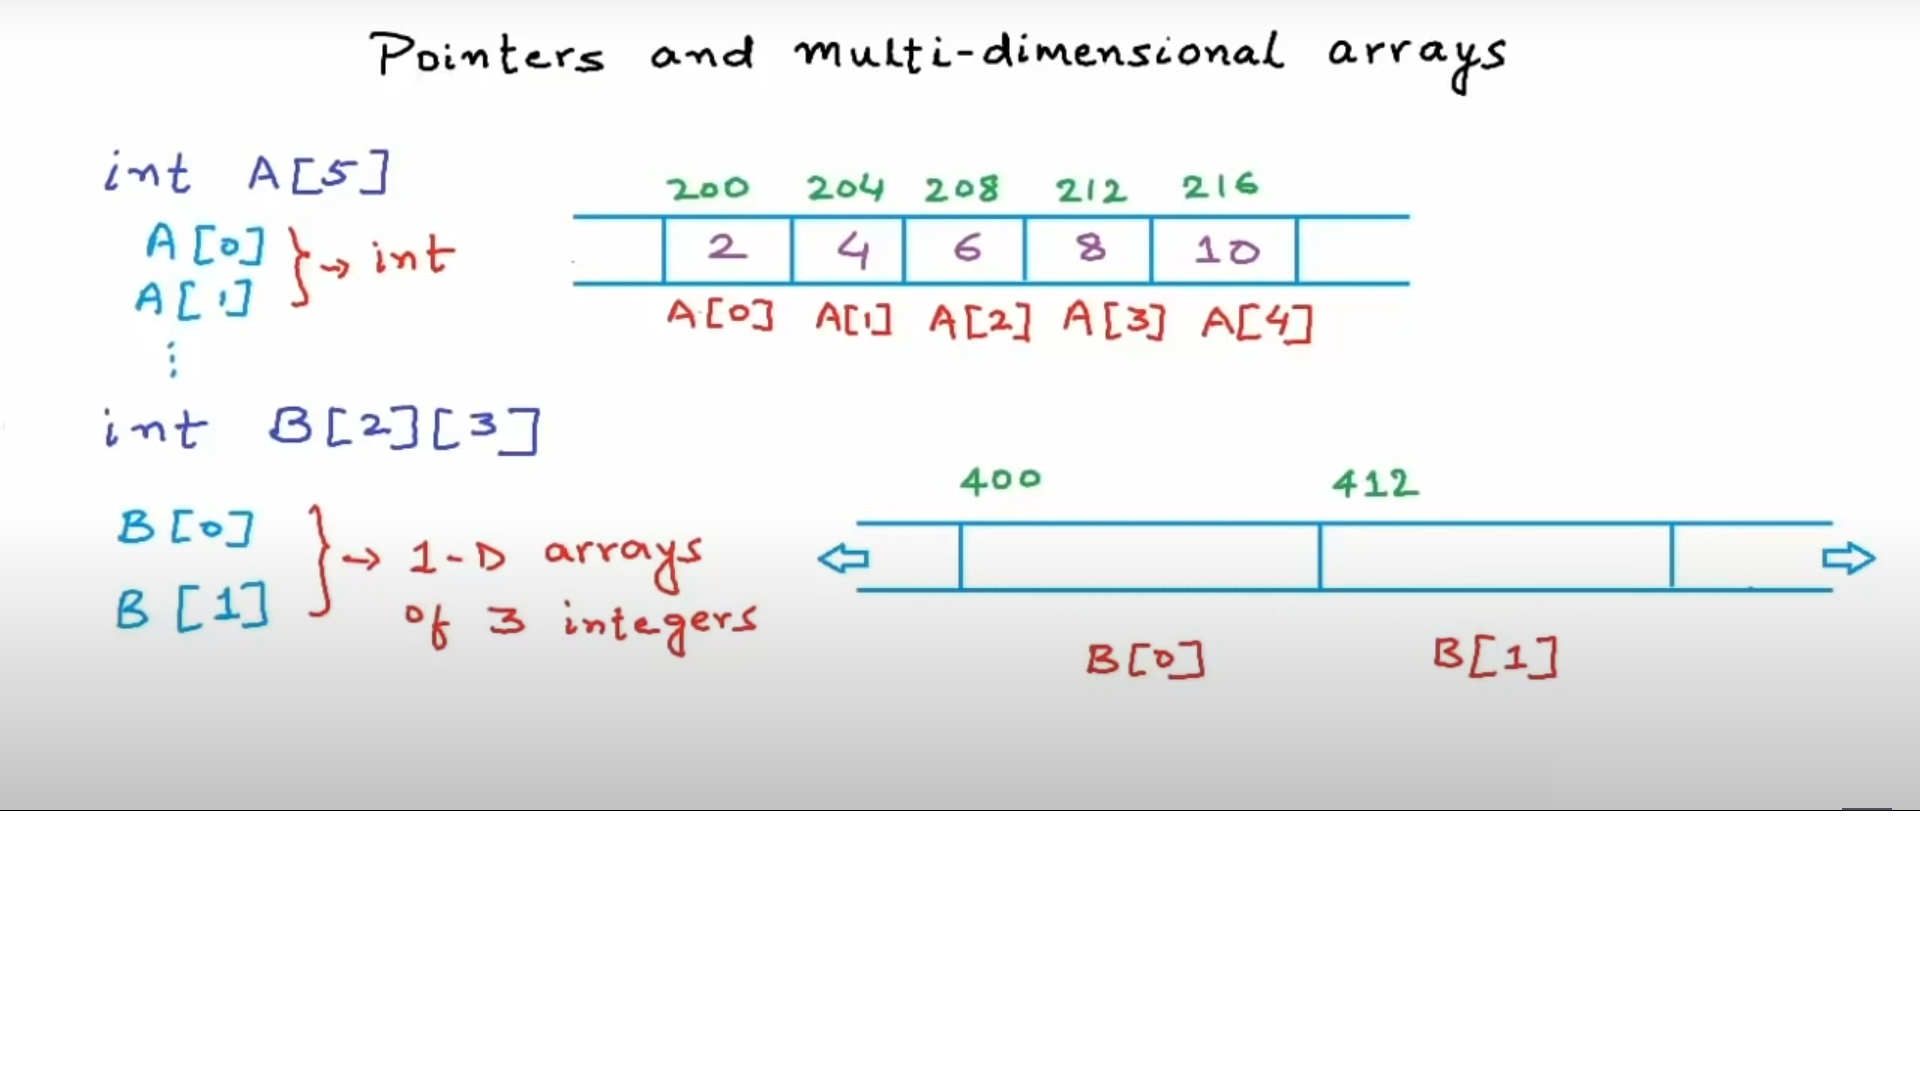 Pointers and multi-dimensional arrays
int A[5]
A[0]
A[1]
⋮
} → int
200 204 208 212 216
2 4 6 8 10
A[0] A[1] A[2] A[3] A[4]
int B[2][3]
B[0]
B[1]
} → 1-D arrays
of 3 integers
400 412
B[0] B[1]